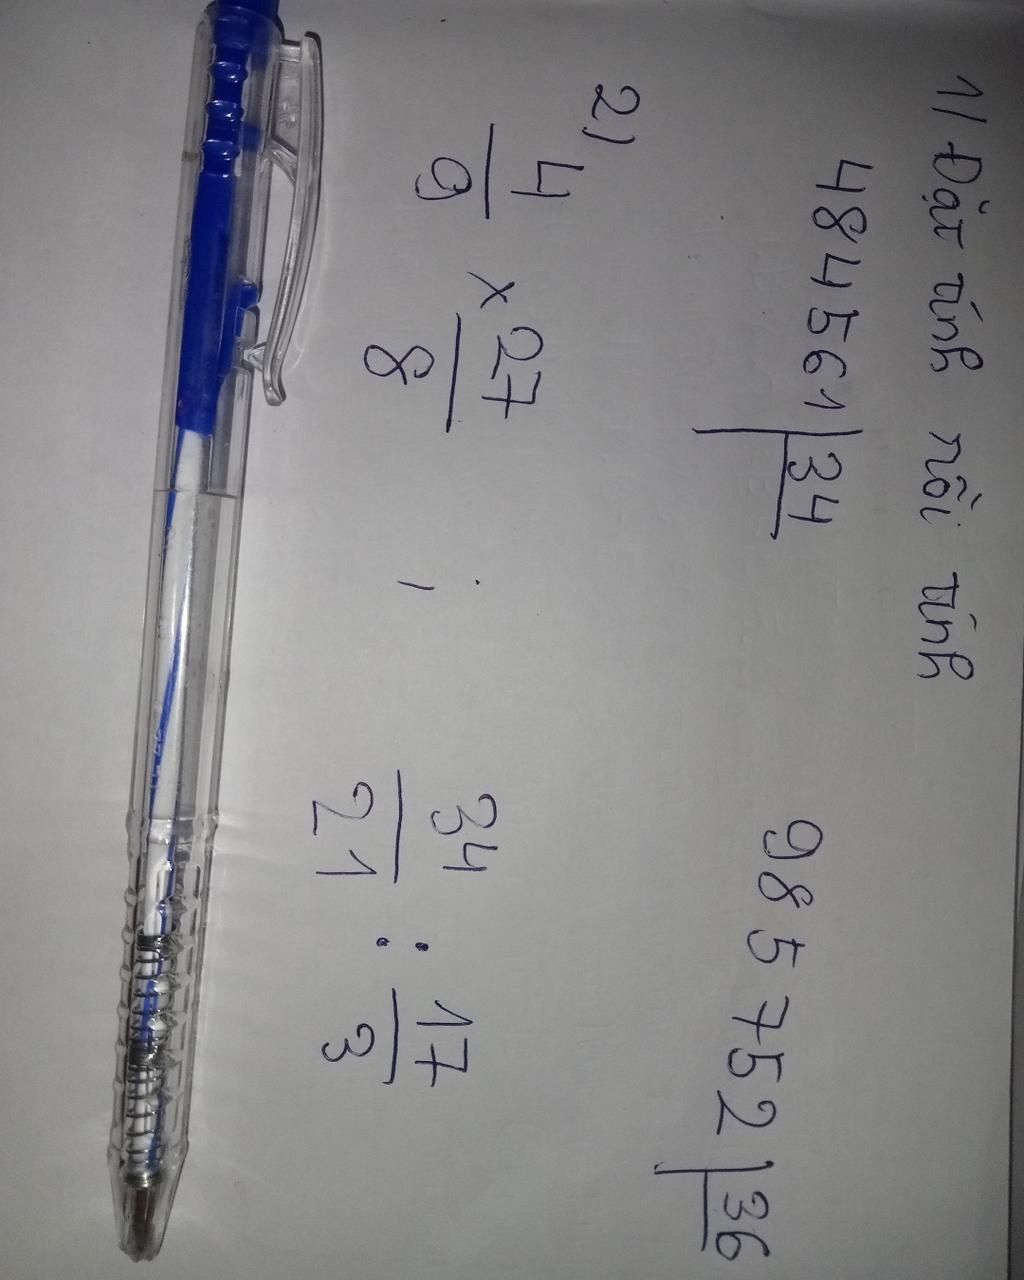 1) Đặt tính rồi tính
484561 | 34 985752 | 36
2) 4/9 x 27/8 ; 34/21 : 17/3